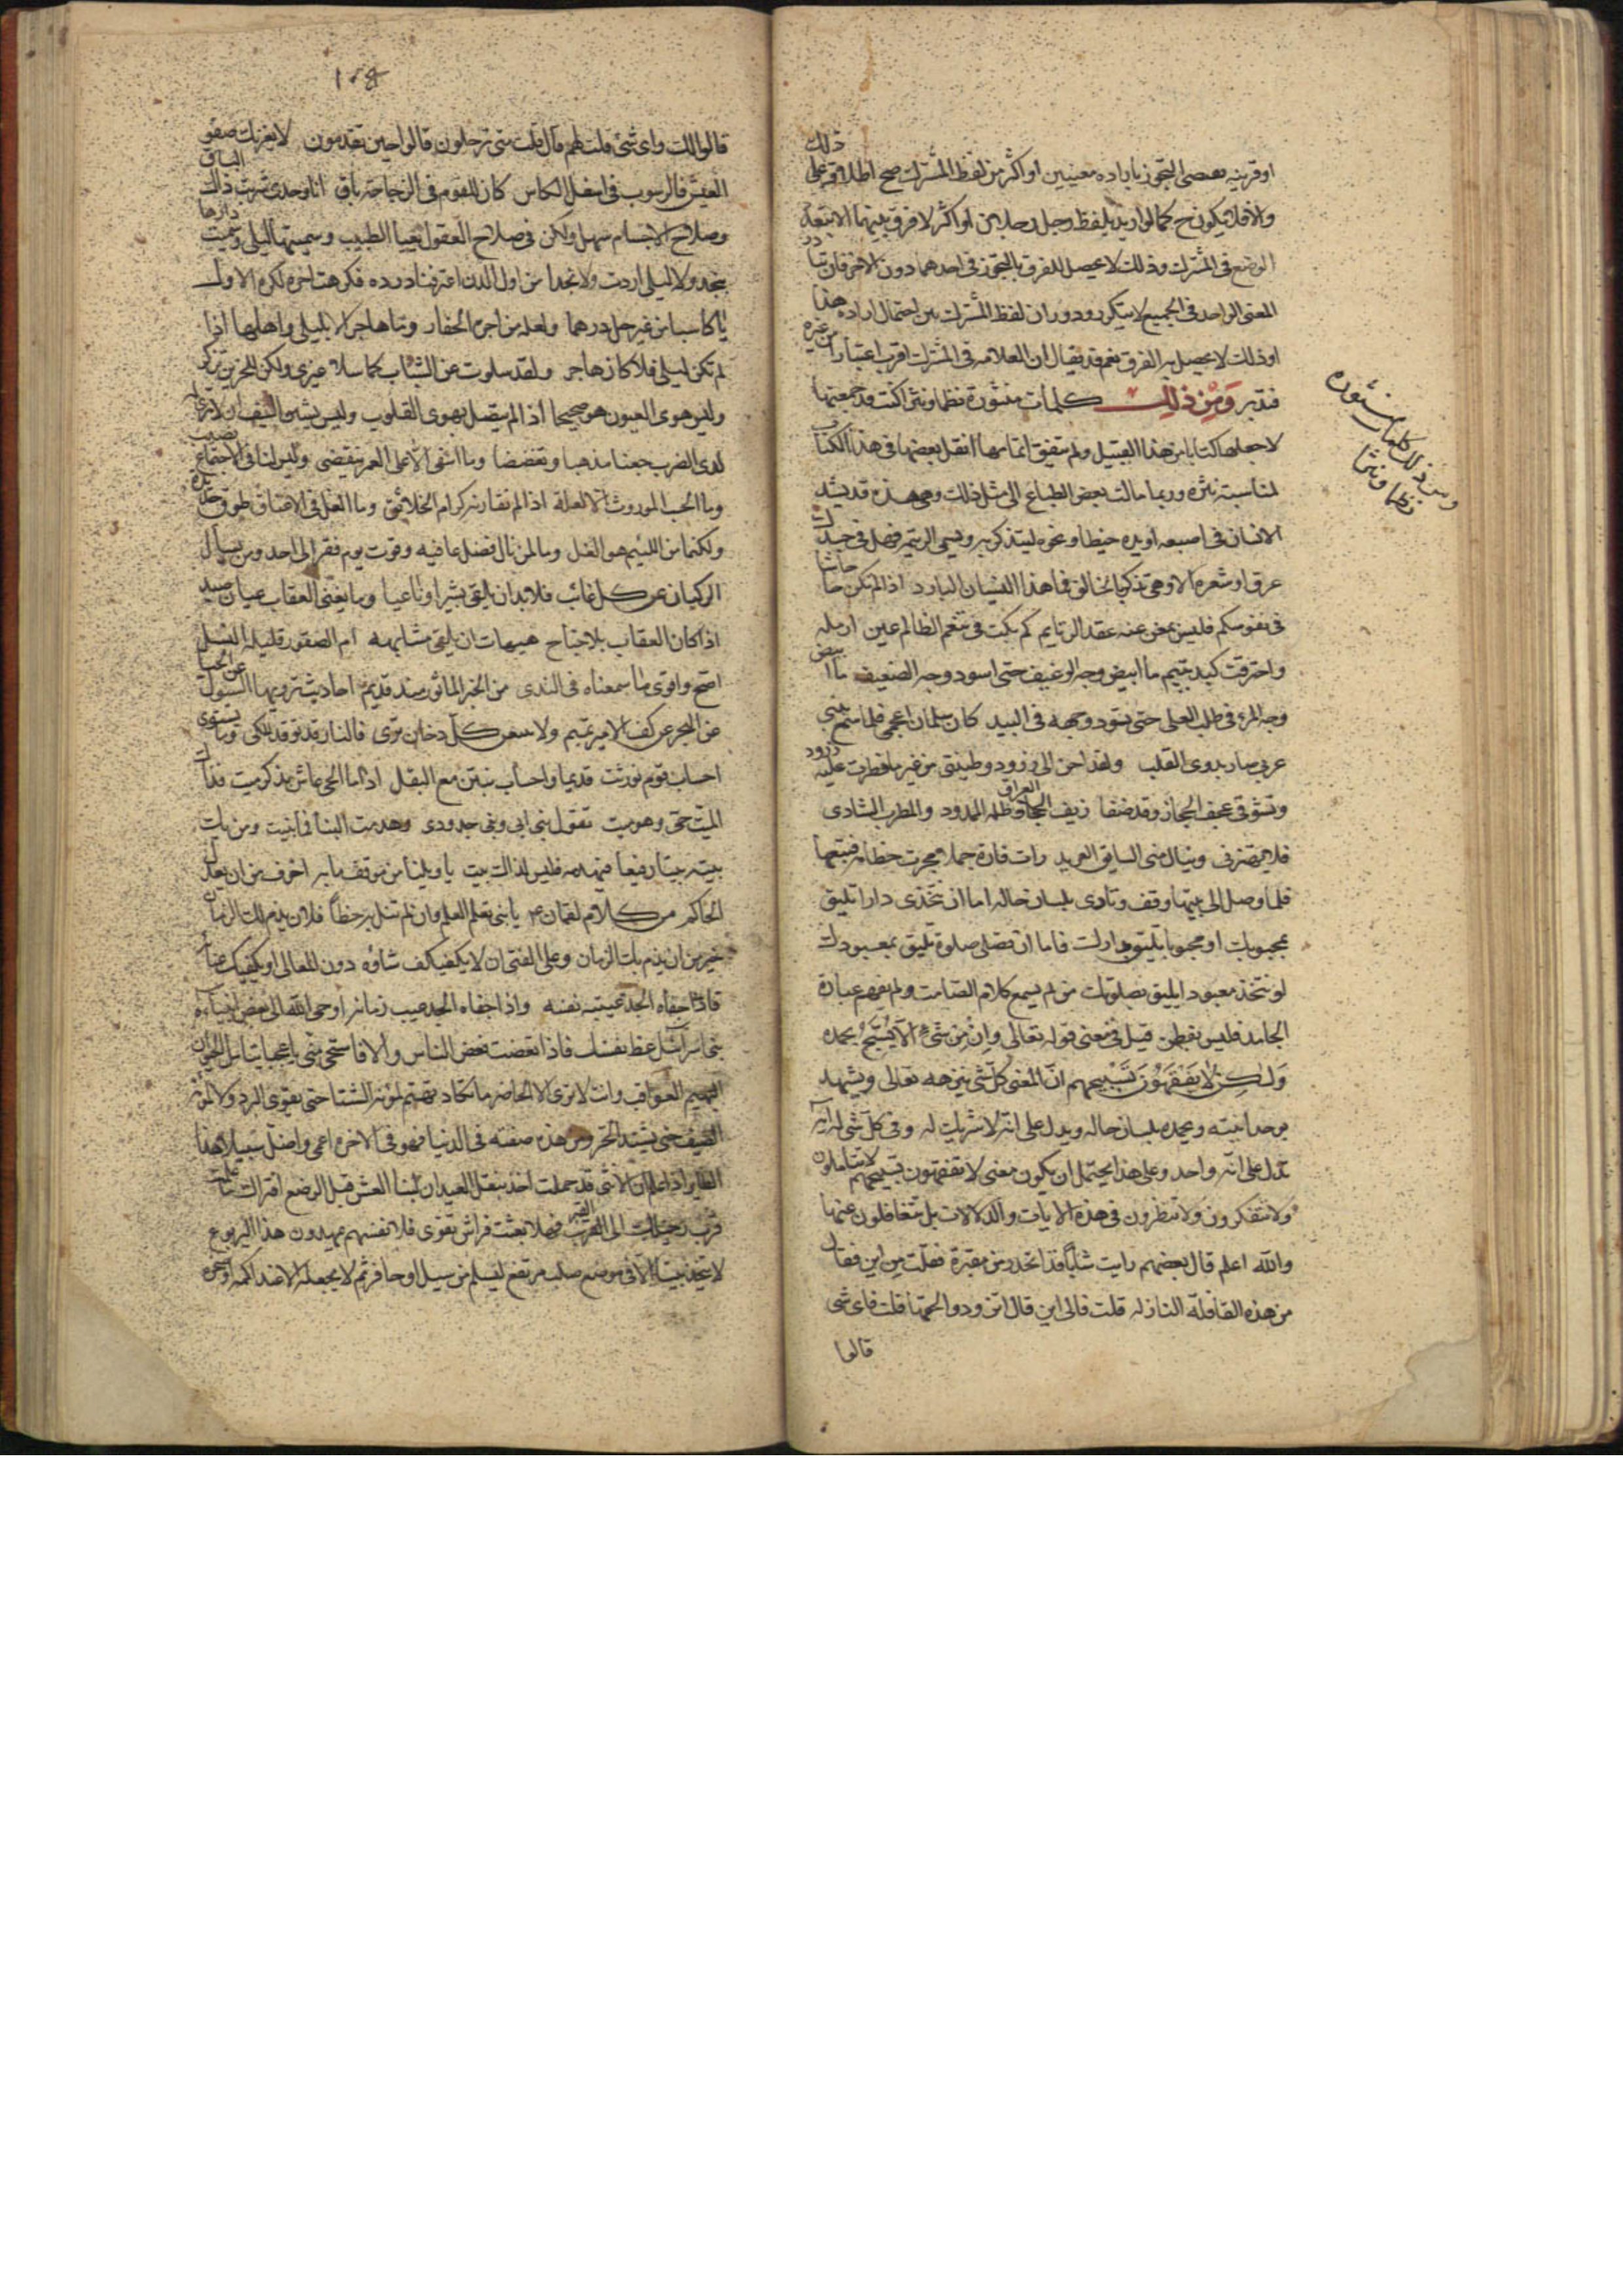 ذلك
او قرينه بعض التجوز باراده معنيين او اكثر من لفظ المشترك صح اطلاقه على
والا فلا يكون ح كما لو اريد بلفظ رجل رجلين او اكثر لا فرق بينهما الا بتعدد
الوضع في المشترك وذلك لا يحصل الفرق بالتجوز في احدهما دون الاخر فان تبادر
المعنى الواحد في الجميع لا ينكر ودوران لفظ المشترك بين احتمال اراده هذا
او ذلك لا يحصل به الفرق نعم قد يقال ان العلاقه في المشترك اقرب اعتبارا من غيره
فتدبر وَمِنْ ذلِك كلمات منثورة نظما ونثرا كنت قد جمعتها
ومن ذلك كلمات منثوره
نظما ونثرا
لاجعلها كتابا من هذا القبيل ولم يتفق اتمامها انقل بعضها في هذا الكتاب
لمناسبته نثره وربما مالت بعض الطباع الى مثل ذلك وهي هذه قد يشد
الانسان في اصبعه او يده خيطا ونحوه ليتذكر به ويسمى الرتيم فهل في جسدك
عرق او شعره الا وهي تذكر بالخالق فما هذا النسيان البارد اذا لم تكن حاجاتنا
في نفوسكم فليس بمغن عنه عقد الرتايم كم بكت في تنعم الظالم عين ارمله
واحترقت كبد يتيم ما ابيض وجه الرغيف حتى اسود وجه الضعيف ما ابيض
وجه المرء في طلب العلى حتى يسود وجهه في البيد كان سلمان اعجمي فلما سمع بنبي
عربي صار بدوى القلب ولقد احن الى زرود وطينتي من غير ما فطرت عليه زرود
ويشوقني عجف الحجاز وقد ضفا ريف العراق وظله الممدود والمطرب الشادى
فلا يهتزني وينال مني السايق الغريد رات فارة جملا فجرت خطامه فتبعها
فلما وصل الى بيتها وقف ونادى بلسان حاله اما ان تتخذى دارا تليق
بمحبوبك او محبوبا يليق بدارك فاما ان تصلى صلوة تليق بمعبودك
او تتخذ معبودا يليق بصلوتك من لم يسمع كلام الصامت ولم يفهم عبارة
الجامد فليس بفطن قيل في معنى قوله تعالى وَاِنْ مِنْ شَىْءٍ اِلّا يُسَبِّحُ بحمده
وَلكِنْ لا يَفْقَهُوْنَ تَسْبِيحهم انّ المعنى كلّ شي ينزهه تعالى ويشهد
بوحدانيته ويحمده بلسان حاله ويدل على انه لا شريك له وفي كل شي له ايه
تدل على انه واحد وعلى هذا يحتمل ان يكون معنى لا تفقهون تسبيحهم لا تتاملون
ولا تتفكرون ولا تنظرون في هذه الايات والدلالات بل تتغافلون عنها
والله اعلم قال بعضهم رايت شابّا قد انحدر من مقبرة فقلت من اين فقال
من هذه القافلة النازله قلت فالى اين قال اتزود والحقها قلت فاى شى
قالوا
قالوا لك واى شئ قلت لهم قال قلت متى ترحلون قالوا حين تقدمون لا يغرنك صفو
العيش فالرسوب في اسفل الكاس كان للقوم في الزجاجة باق انا وحدى شربت ذاك الباقى
وصلاح الاجسام سهل ولكن في صلاح العقول يعيا الطبيب وسميتها ليلى وسميت دارها
بنجد ولا ليلى اردت ولا نجدا من اول الدن اغترفنا درده فكرهت اخره لكره الاول
يا كاسبا من غير حل درهما ولعله من اجرة الحفار وما هاجر الا بليلى واهلها اذا
لم تكن ليلى فلا كان هاجر ولقد سلوت عن الشباب كما سلا غيرى ولكن للحزين تذكر
وليس هوى العيون هو صحيحا اذا لم يتصل بهوى القلوب وليس يشين السيف ان لا ترى له
لدى الضرب جفنا مذهبا ومفضضا وما اسفى الا على العمر ينقضى وليس لنا في الاجتماع نصيب
وما الحسب الموروث الا لعله اذا لم تقارنه كرام الخلائق وما الغل في الاعناق طوق حديده
ولكنما من اللئيم هو الغل وما لمرء نال فضل عافيه وقوت يوم فقر الى احد ومن يسال
الركبان عن كل غائب فلا بد ان يلقى بشيرا وناعيا وما يغنى العقاب عيان صيد
اذا كان العقاب بلا جناح هيهات ان يلقى مشابهه ام الصقور قليلة النسل
اصح واقوى ما سمعناه في الندى من الخبر الماثور منذ قديم احاديث ترويها السيول عن الحيا
عن البحر عن كف الامير تميم ولا كل دخان ترى فالنار قد توقد للكى وما تستوى
احساب قوم تورثت قديما واحساب نبتن مع البقل اذا ما الحى عاش بذكر ميت فذاك
الميت حى وهو ميت تقول بنى ابى وبنى جدودى وهدمت البنا فما بنيت ومن يك
بيته بيتا رفيعا فيهدمه فليس لذاك بيت يا ويلنا من موقف ما به اخوف من ان يعدل
الحاكم من كلام لقمان ع يا بنى تعلم العلم وان لم تنل به حظا فلان يذم لك الزمان
خير من ان يذم بك الزمان وعلى الفتى ان لا يكفكف شاوه دون المعالى او يكفيك عنا
فاذا جفاه الجد عيبت نفسه واذا جفاه الجد عيب زمانه اوحى الله الى بعض انبياء
بنى اسرائيل عظ نفسك فاذا اتعظت فعظ الناس والا فاستحي مني يا عجبا يتامل الحيوان
البهيم العواقب وانت لا ترى الا الحاضر ما تكاد تهتم لمؤنة الشتا حتى يقوى البرد ولا لمؤنة
الصيف حتى يشتد الحر ومن هذه صفته في الدنيا فهو في الاخره اعمى واضل سبيلا هذا
الطاير اذا علم ان الانثى قد حملت اخذ ينقل العيدان لبنا العش قبل الوضع افتراك ما علمت
قرب رحيلك الى القبر فهلا بعثت فراش تقوى فلانفسهم يمهدون هذا اليربوع
لا يتخذ بيتا الا في موضع صلب مرتفع ليسلم من سيل او حافر ثم لا يجعله الا عند اكمه او صخره